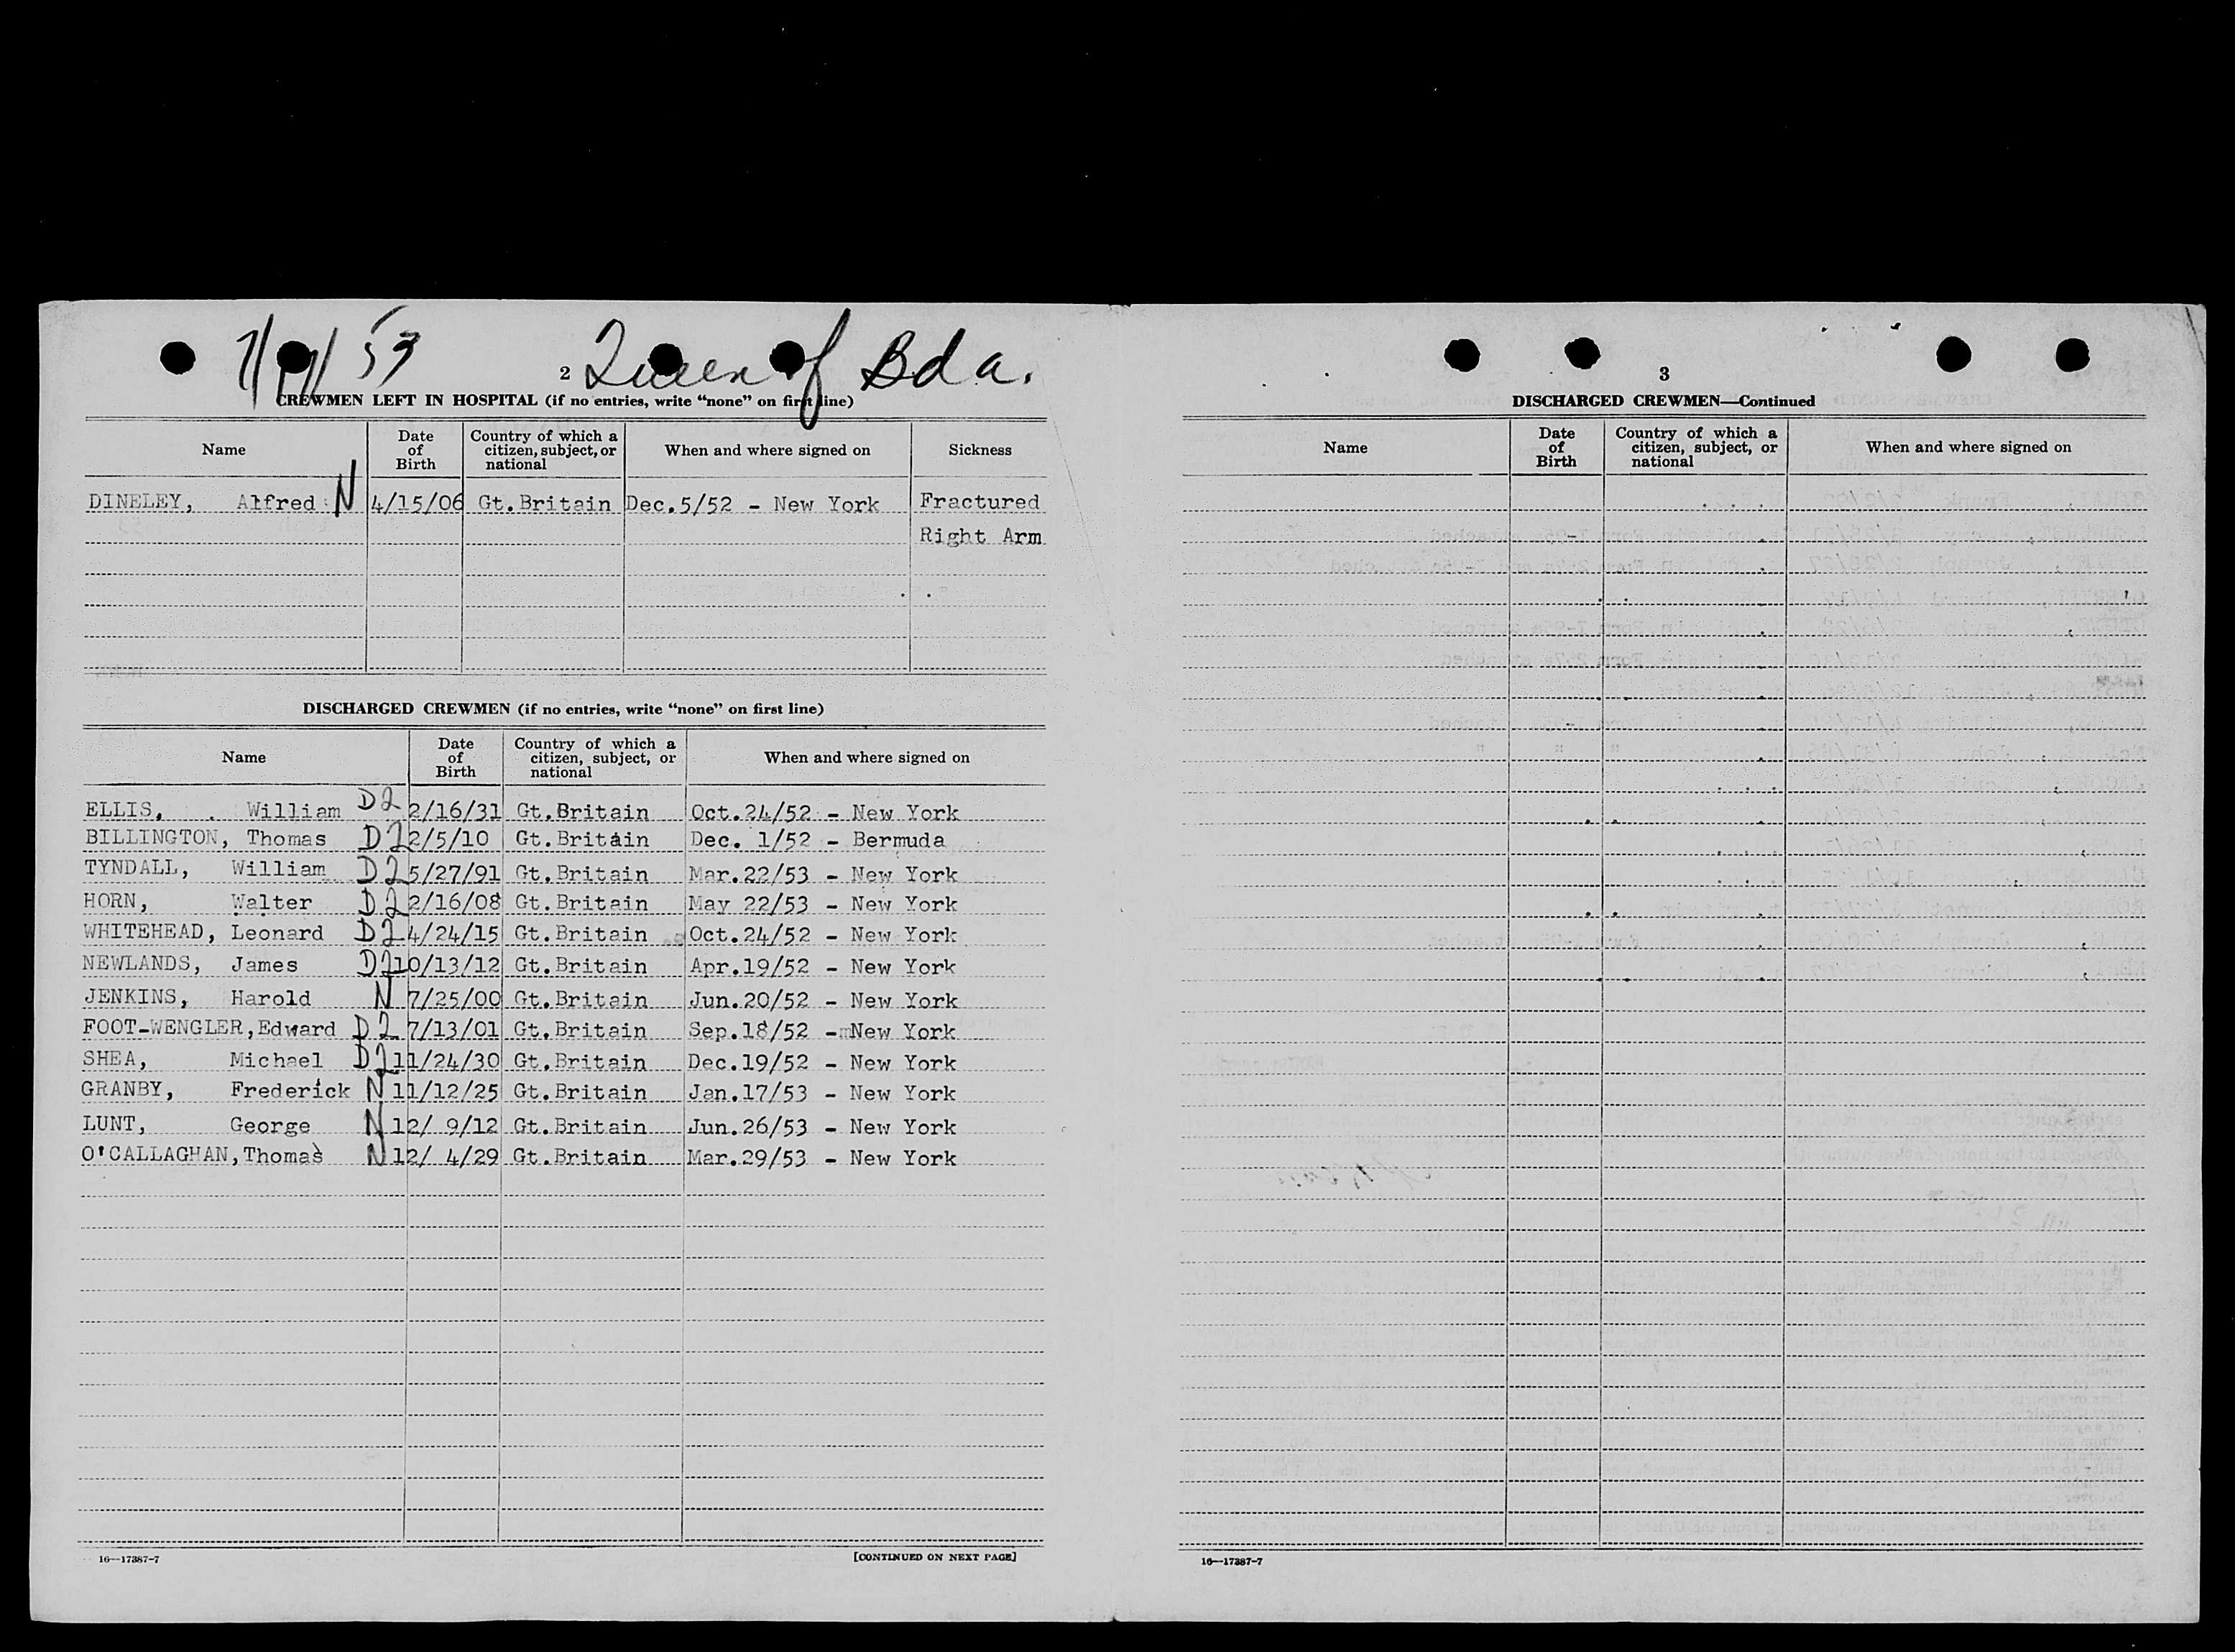 53
2 Queen of Bda.
CREWMEN LEFT IN HOSPITAL (if no entries, write “none” on first line)
Name Date of Birth Country of which a citizen, subject, or national When and where signed on Sickness
DINELEY, Alfred N 4/15/06 Gt.Britain Dec.5/52 - New York Fractured
Right Arm
DISCHARGED CREWMEN (if no entries, write “none” on first line)
Name Date of Birth Country of which a citizen, subject, or national When and where signed on
ELLIS, . William D2 2/16/31 Gt.Britain Oct.24/52 - New York
BILLINGTON, Thomas D2 2/5/10 Gt.Britain Dec. 1/52 - Bermuda
TYNDALL, William D2 5/27/91 Gt.Britain Mar.22/53 - New York
HORN, Walter D2 2/16/08 Gt.Britain May 22/53 - New York
WHITEHEAD, Leonard D2 4/24/15 Gt.Britain Oct.24/52 - New York
NEWLANDS, James D2 10/13/12 Gt.Britain Apr.19/52 - New York
JENKINS, Harold N 7/25/00 Gt.Britain Jun.20/52 - New York
FOOT-WENGLER,Edward D2 7/13/01 Gt.Britain Sep.18/52 -mNew York
SHEA, Michael D2 11/24/30 Gt.Britain Dec.19/52 - New York
GRANBY, Frederick N 11/12/25 Gt.Britain Jan.17/53 - New York
LUNT, George N 12/ 9/12 Gt.Britain Jun.26/53 - New York
O'CALLAGHAN,Thomas N 12/ 4/29 Gt.Britain Mar.29/53 - New York
16—17387-7 [CONTINUED ON NEXT PAGE]
3
DISCHARGED CREWMEN—Continued
Name Date of Birth Country of which a citizen, subject, or national When and where signed on
16—17387-7